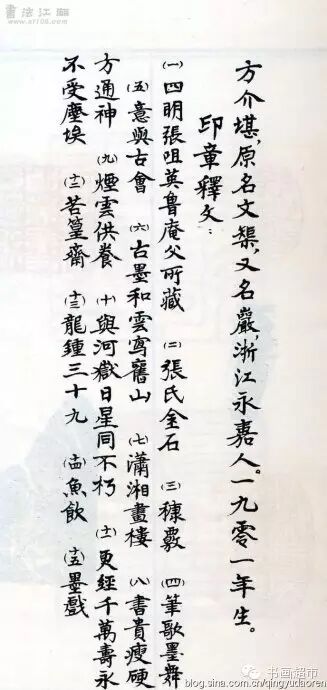 書法江湖
www.sf108.com
方介堪,原名文榘,又名巖,浙江永嘉人。一九零一年生。
印章釋文:
㈠四明張咀英魯庵父所藏 ㈡張氏金石 ㈢穅敼 ㈣筆歌墨舞
㈤意與古會 ㈥古墨和雲寫舊山 ㈦瀟湘畫樓 ㈧書貴瘦硬
方通神 ㈨煙雲供養 ㈩與河嶽日星同不朽 (十一)更經千萬壽永
不受塵埃 (十二)苦篁齋 (十三)龍鍾三十九 (十四)魚飲 (十五)墨戲
书画超市
blog.sina.com.cn/qingyudaoren